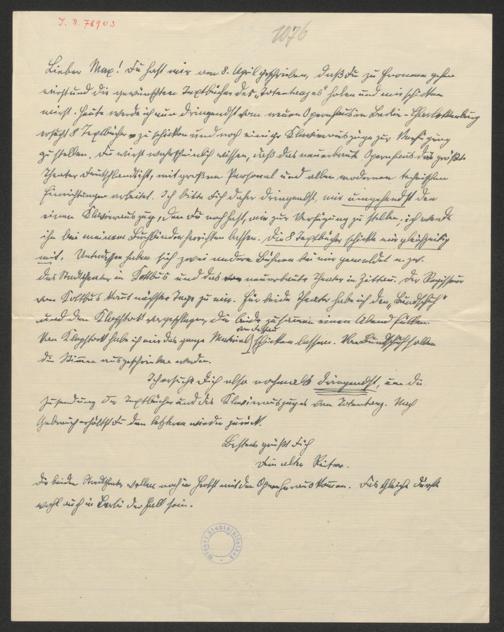 J. N. 78903
1076
Lieber Max! Du hast mir am 8. April geschrieben, daß du zu Fromme gehen
wirst und die gewünschten Textbücher des "Totentanzes" haben und mir schicken
wirst. Heute werde ich nun dringendst vom neuen Opernhaus in Berlin-Charlottenburg
ersucht 8 Textbücher zu schicken und noch einige Klavierauszüge zur Verfügung
zu stellen. Du wirst wahrscheinlich wissen, daß das neuerbaute Opernhaus das größte
Theater Deutschlands ist, mit großem Personal und allen modernen technischen
Einrichtungen arbeitet. Ich bitte dich daher dringendst, mir umgehendst den
einen Klavierauszug, den du noch hast, mir zur Verfügung zu stellen. Ich werde
ihn bei meinem Buchbinder herrichten lassen. Die 8 Textbücher schicke mir gleichzeitig
mit. Unterdessen haben sich zwei andere Bühnen bei mir gemeldet u. zw.
das Stadttheater in Cottbus und das neuerbaute Theater in Zittau. Der Regisseur
von Cottbus kommt nächster Tage zu mir. Für beide Theater habe ich den
und den vorgeschlagen, die beide zusammen einen Abend füllen.
Von habe ich nur das ganze Material schicken lassen. Von sollen
die Stimmen ausgeschrieben werden.
Ich ersuche dich also nochmals dringendst, um die
Zusendung der Textbücher und des Klavierauszuges vom Totentanz. Nach
Gebrauch erhältst du den letzteren wieder zurück.
Bestens grüßt dich
Dein alter
Die beiden Stadttheater wollen noch im Herbst mit den Opern herauskommen. Das Gleiche dürfte
wohl auch in Berlin der Fall sein.